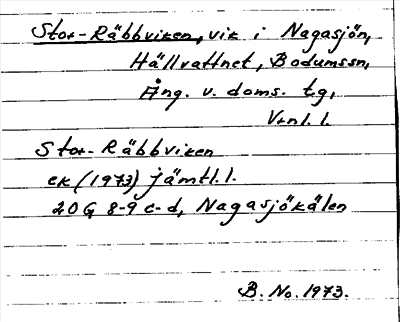 Stor-Räbbviken, vik i Nagasjön,
Hällvattnet, Bodumssn,
Ång. v. doms. tg,
Vrnl. l.
Stor-Räbbviken
ek (1973) jämtl. l.
20 G 8-9 c-d, Nagasjökälen
B. No. 1973.